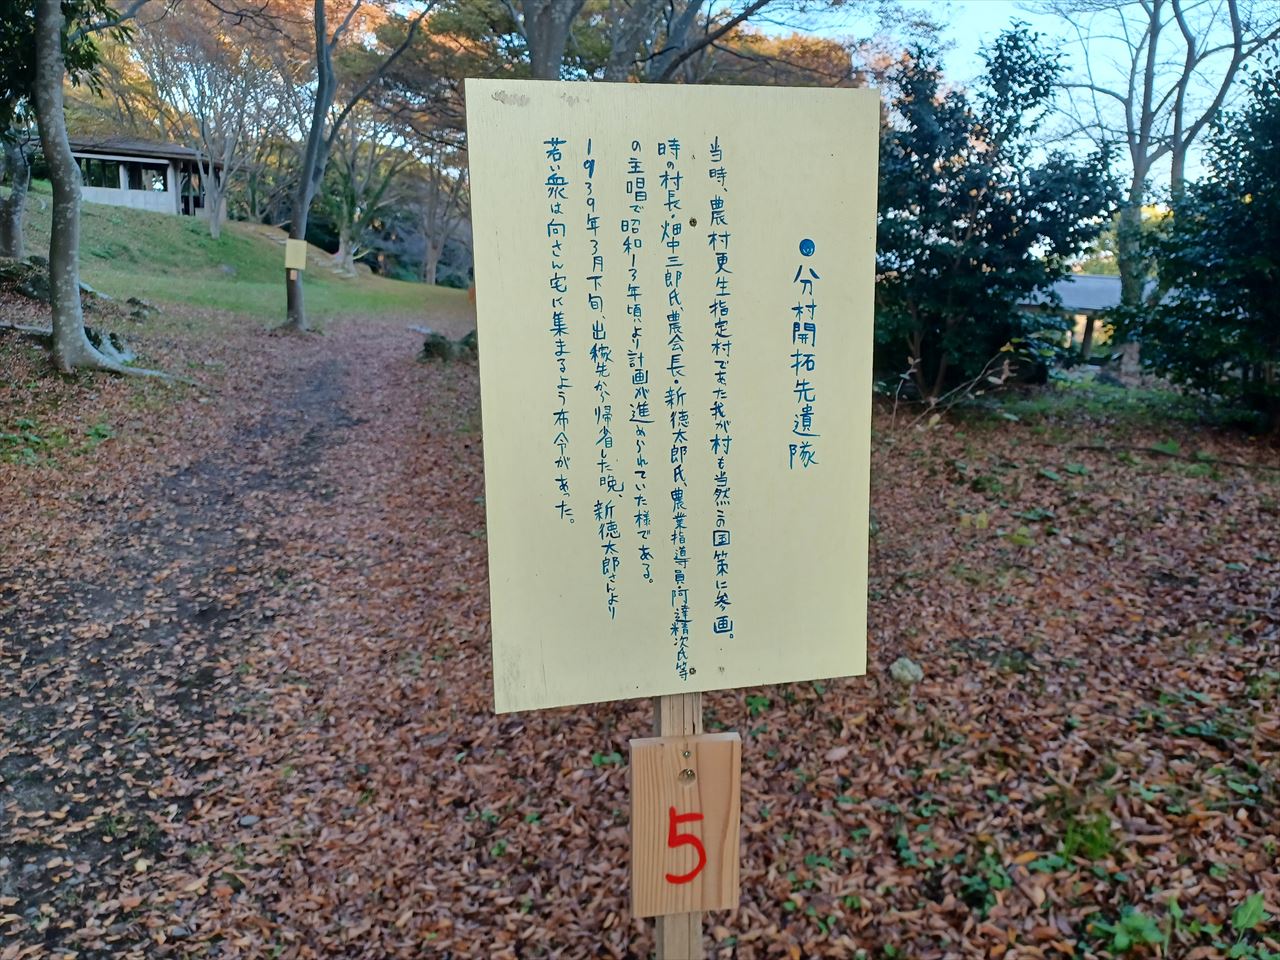 ●分村開拓先遺隊
当時、農村更生指定村であった我が村も当然この国策に参画。
時の村長・畑中三郎氏、農会長・新徳太郎氏、農業指導員・阿達精次氏等
の主唱で昭和13年頃より計画が進められていた様である。
1939年3月下旬、出稼先から帰省した晩、新徳太郎さんより
若い衆は向さん宅に集まるよう布令があった。
5